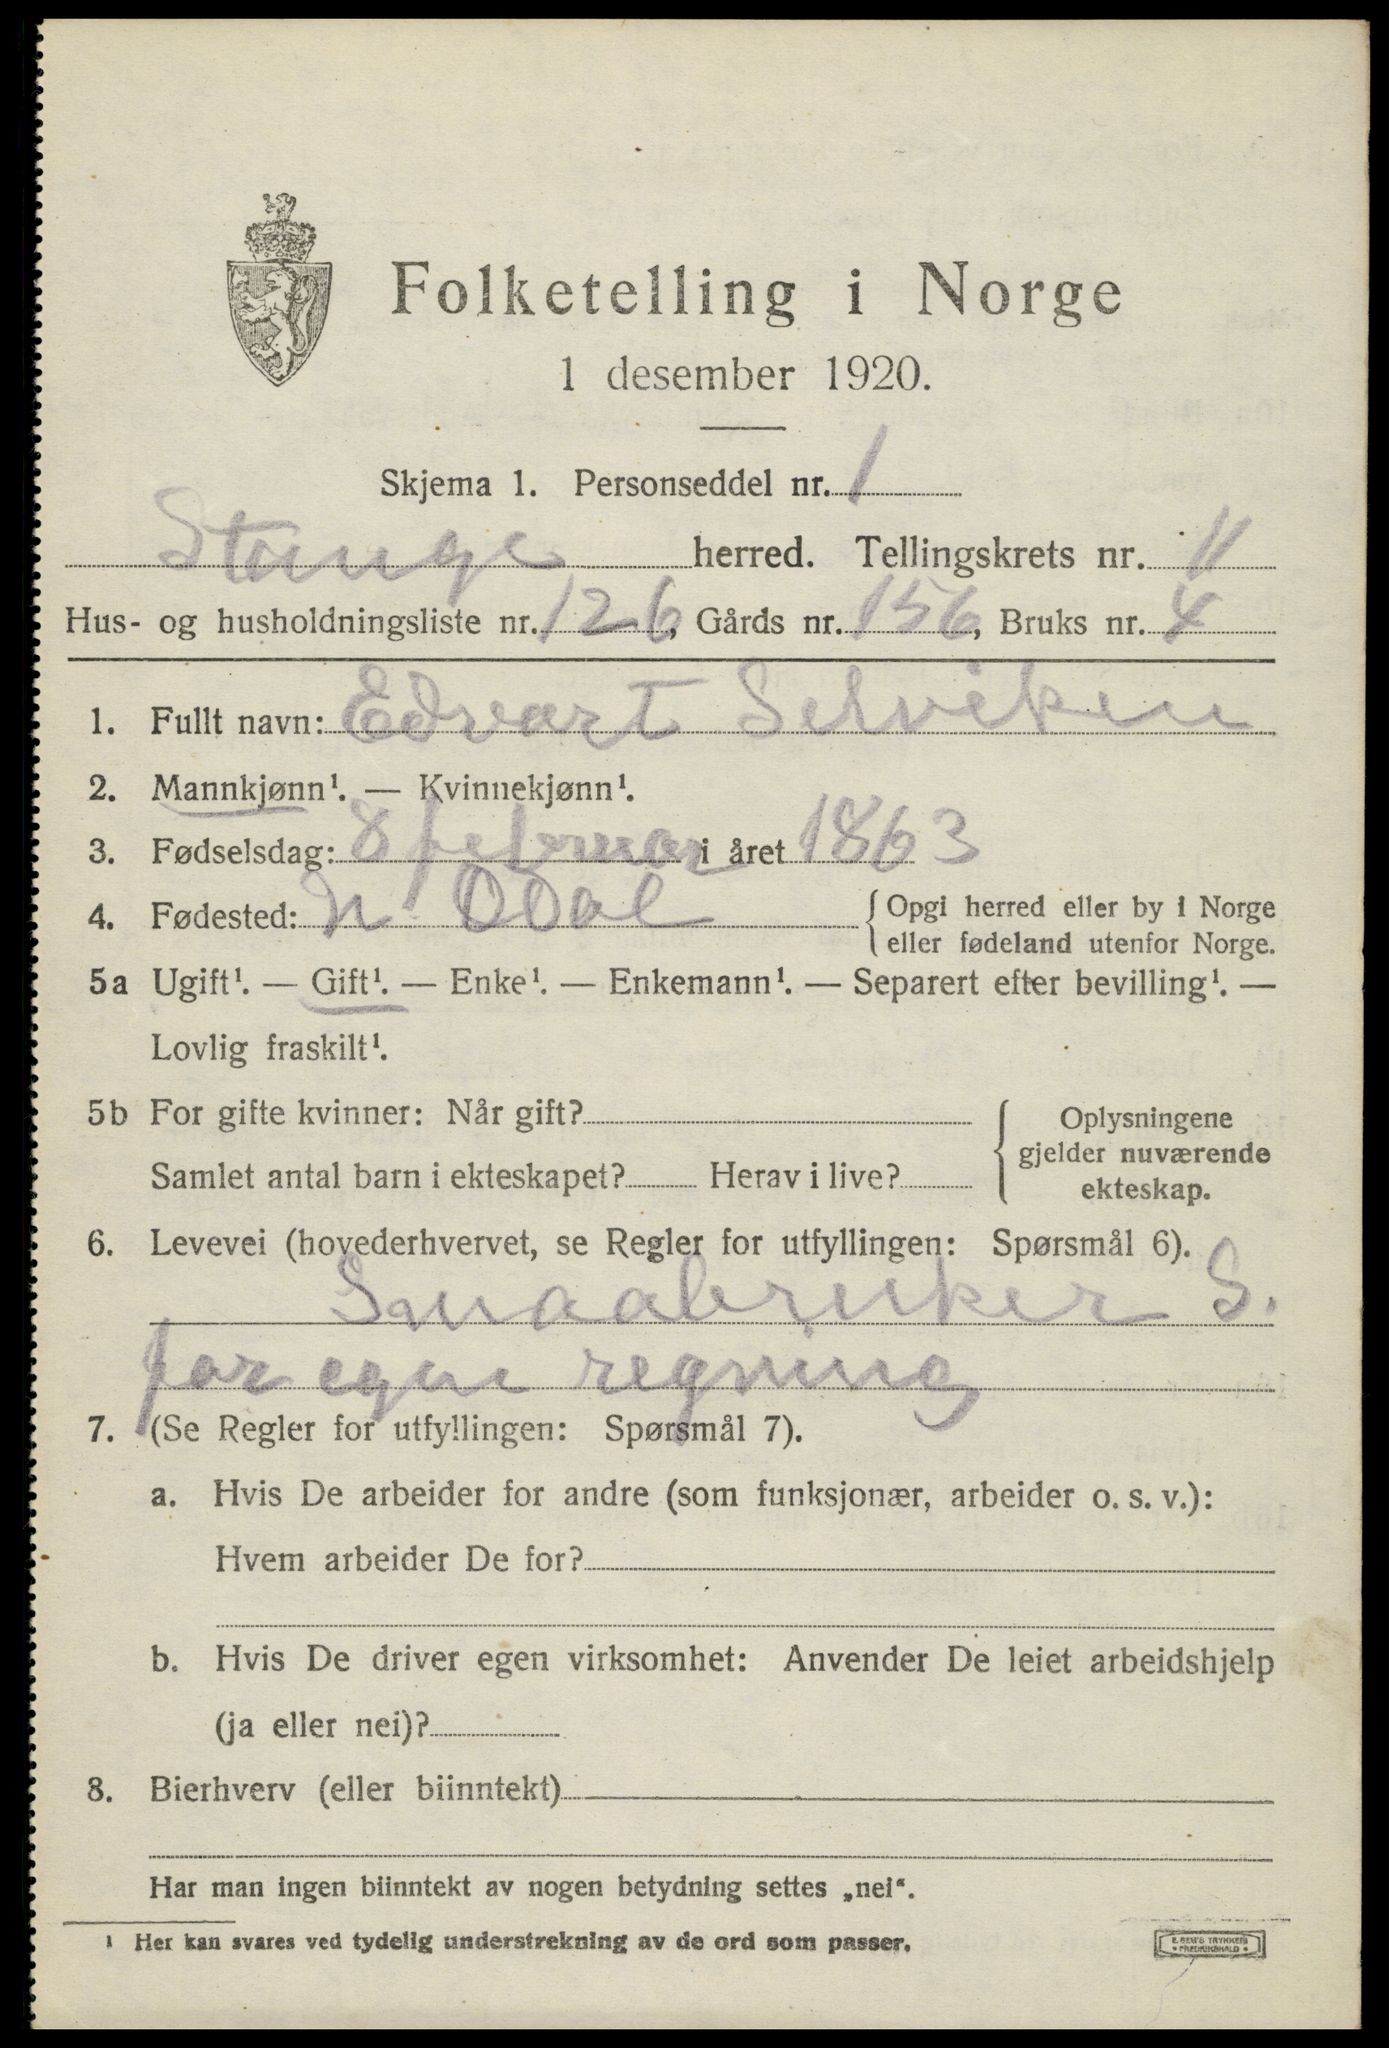 Folketelling i Norge
1 desember 1920.
Skjema 1. Personseddel nr. 1
Stange herred. Tellingskrets nr. 11
Hus- og husholdningsliste nr. 126, Gårds nr. 156, Bruks nr. 4
1. Fullt navn: Edvart Selviken
2. Mannkjønn¹. — Kvinnekjønn¹.
3. Fødselsdag: 8 februar i året 1863
4. Fødested: N Odal {Opgi herred eller by i Norge
eller fødeland utenfor Norge.
5a Ugift¹. — Gift¹. — Enke¹. — Enkemann¹. — Separert efter bevilling¹. —
Lovlig fraskilt¹.
5b For gifte kvinner: Når gift?
Samlet antal barn i ekteskapet? Herav i live?
{ Oplysningene
gjelder nuværende
ekteskap.
6. Levevei (hovederhvervet, se Regler for utfyllingen: Spørsmål 6).
Smaabruker S.
for egen regning
7. (Se Regler for utfyllingen: Spørsmål 7).
a. Hvis De arbeider for andre (som funksjonær, arbeider o. s. v.):
Hvem arbeider De for?
b. Hvis De driver egen virksomhet: Anvender De leiet arbeidshjelp
(ja eller nei)?
8. Bierhverv (eller biinntekt)
Har man ingen biinntekt av nogen betydning settes „nei“.
¹ Her kan svares ved tydelig understrekning av de ord som passer.
E. SEM'S TRYKKERI
• FREDRIKSHALD •